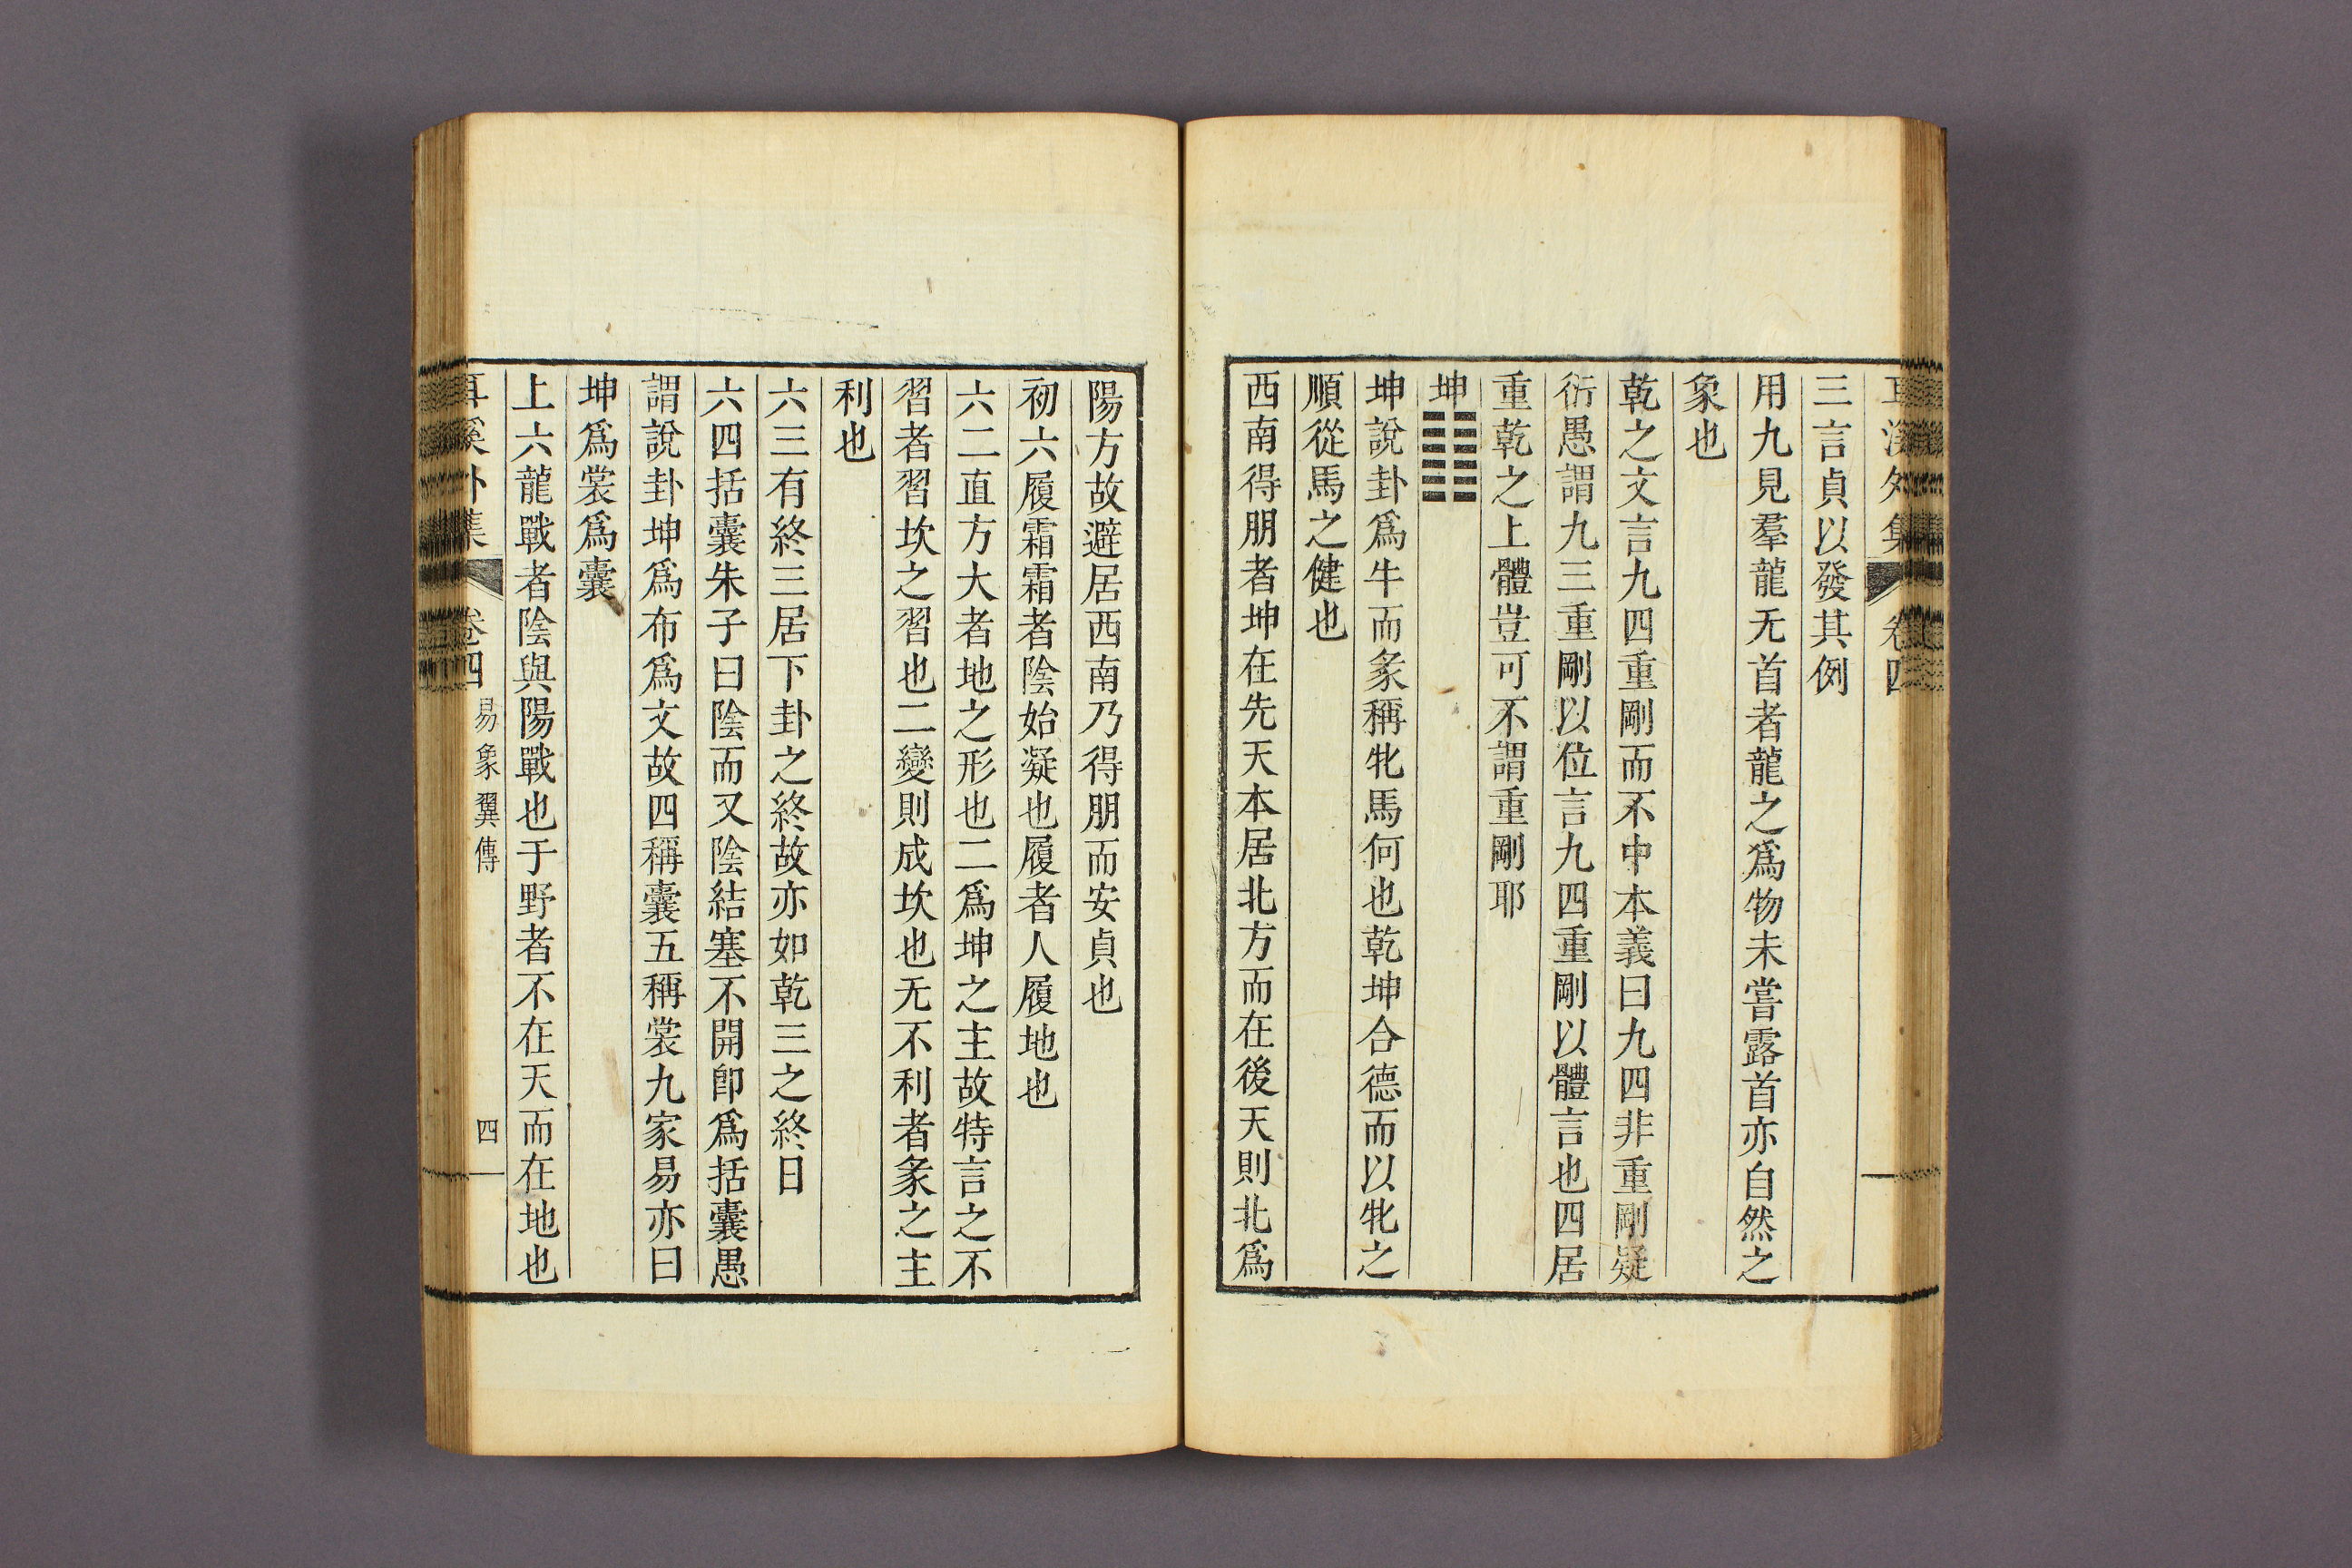 耳溪外集 卷四
三言貞以發其例
用九見羣龍无首者龍之爲物未嘗露首亦自然之
象也
乾之文言九四重剛而不中本義曰九四非重剛疑
衍愚謂九三重剛以位言九四重剛以體言也四居
重乾之上體豈可不謂重剛耶
坤䷁
坤說卦爲牛而彖稱牝馬何也乾坤合德而以牝之
順從馬之健也
西南得朋者坤在先天本居北方而在後天則北爲
陽方故避居西南乃得朋而安貞也
初六履霜霜者陰始凝也履者人履地也
六二直方大者地之形也二爲坤之主故特言之不
習者習坎之習也二變則成坎也无不利者彖之主
利也
六三有終三居下卦之終故亦如乾三之終日
六四括囊朱子曰陰而又陰結塞不開卽爲括囊愚
謂說卦坤爲布爲文故四稱囊五稱裳九家易亦曰
坤爲裳爲囊
上六龍戰者陰與陽戰也于野者不在天而在地也
耳溪外集 卷四 易象翼傳 四